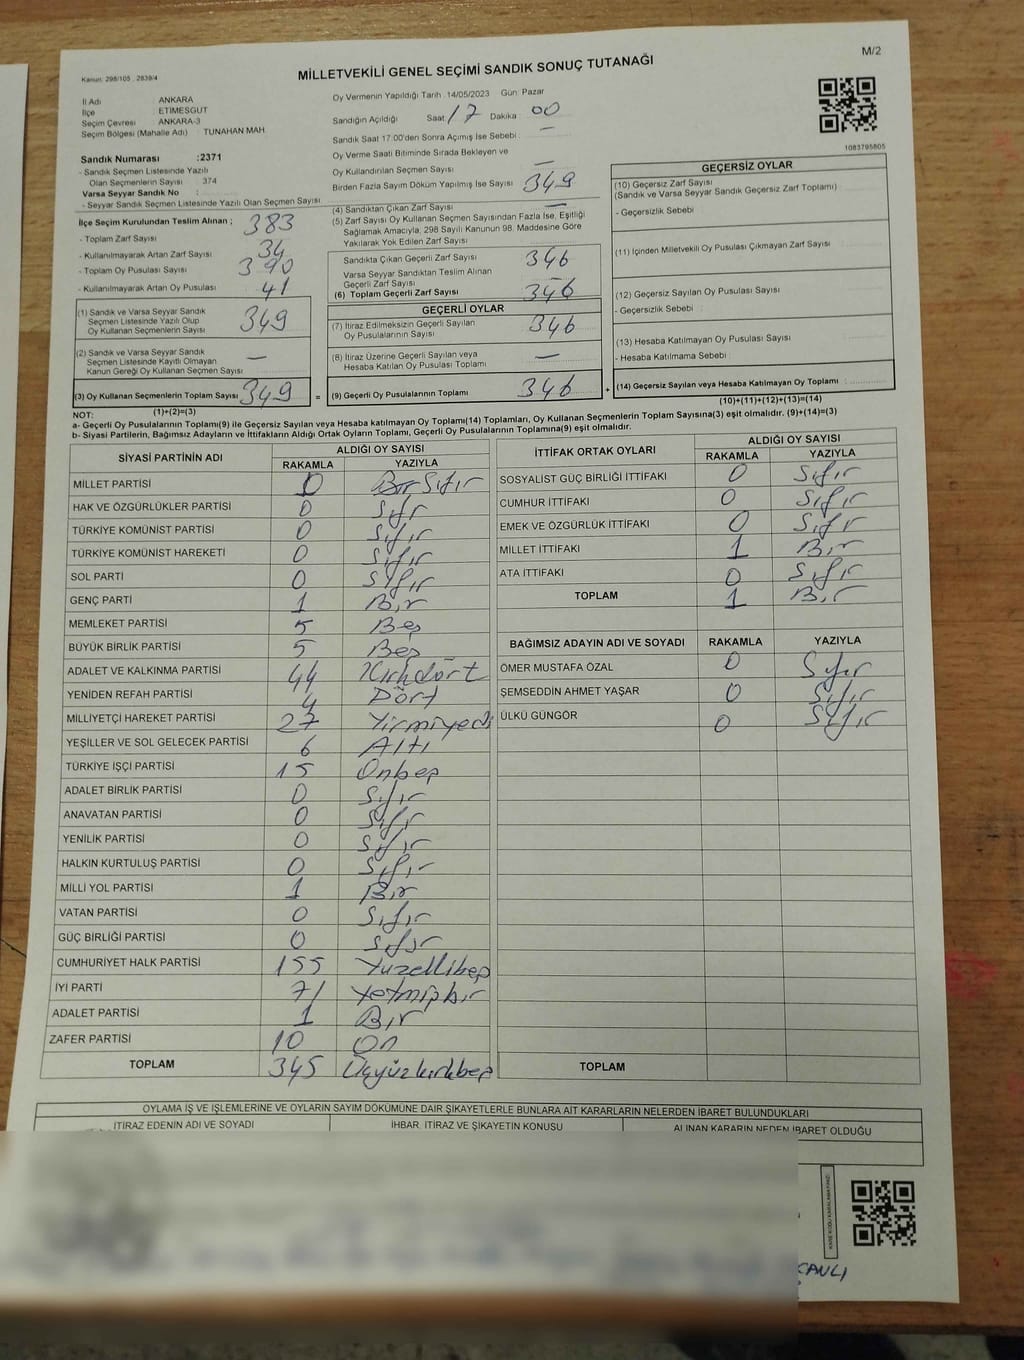 M/2
Kanun: 298/105 , 2839/4
MİLLETVEKİLİ GENEL SEÇİMİ SANDIK SONUÇ TUTANAĞI
İl Adı : ANKARA
İlçe : ETİMESGUT
Seçim Çevresi : ANKARA-3
Seçim Bölgesi (Mahalle Adı) : TUNAHAN MAH.
Sandık Numarası :2371
- Sandık Seçmen Listesinde Yazılı
Olan Seçmenlerin Sayısı : 374
Varsa Seyyar Sandık No :
- Seyyar Sandık Seçmen Listesinde Yazılı Olan Seçmen Sayısı
Oy Vermenin Yapıldığı Tarih :14/05/2023 Gün: Pazar
Sandığın Açıldığı Saat 17 Dakika : 00
Sandık Saat 17.00'den Sonra Açımış İse Sebebi : —
Oy Verme Saati Bitiminde Sırada Bekleyen ve
Oy Kullandırılan Seçmen Sayısı —
Birden Fazla Sayım Döküm Yapılmış İse Sayısı 349
1083795805
İlçe Seçim Kurulundan Teslim Alınan ;
- Toplam Zarf Sayısı 383
- Kullanılmayarak Artan Zarf Sayısı 34
- Toplam Oy Pusulası Sayısı 390
- Kullanılmayarak Artan Oy Pusulası 41
(1) Sandık ve Varsa Seyyar Sandık
Seçmen Listesinde Yazılı Olup
Oy Kullanan Seçmenlerin Sayısı 349
(2) Sandık ve Varsa Seyyar Sandık
Seçmen Listesinde Kayıtlı Olmayan
Kanun Gereği Oy Kullanan Seçmen Sayısı —
(3) Oy Kullanan Seçmenlerin Toplam Sayısı 349
(1)+(2)=(3)
(4) Sandıktan Çıkan Zarf Sayısı —
(5) Zarf Sayısı Oy Kullanan Seçmen Sayısından Fazla İse, Eşitliği
Sağlamak Amacıyla, 298 Sayılı Kanunun 98. Maddesine Göre
Yakılarak Yok Edilen Zarf Sayısı
Sandıkta Çıkan Geçerli Zarf Sayısı 346
Varsa Seyyar Sandıktan Teslim Alınan
Geçerli Zarf Sayısı —
(6) Toplam Geçerli Zarf Sayısı 346
GEÇERLİ OYLAR
(7) İtiraz Edilmeksizin Geçerli Sayılan
Oy Pusulalarının Sayısı 346
(8) İtiraz Üzerine Geçerli Sayılan veya
Hesaba Katılan Oy Pusulası Toplamı —
= (9) Geçerli Oy Pusulalarının Toplamı 346 +
GEÇERSİZ OYLAR
(10) Geçersiz Zarf Sayısı
(Sandık ve Varsa Seyyar Sandık Geçersiz Zarf Toplamı)
- Geçersizlik Sebebi :
(11) İçinden Milletvekili Oy Pusulası Çıkmayan Zarf Sayısı :
(12) Geçersiz Sayılan Oy Pusulası Sayısı
- Geçersizlik Sebebi :
(13) Hesaba Katılmayan Oy Pusulası Sayısı
- Hesaba Katılmama Sebebi :
(14) Geçersiz Sayılan veya Hesaba Katılmayan Oy Toplamı :
(10)+(11)+(12)+(13)=(14)
NOT:
a- Geçerli Oy Pusulalarının Toplamı(9) ile Geçersiz Sayılan veya Hesaba katılmayan Oy Toplamı(14) Toplamları, Oy Kullanan Seçmenlerin Toplam Sayısına(3) eşit olmalıdır. (9)+(14)=(3)
b- Siyasi Partilerin, Bağımsız Adayların ve İttifakların Aldığı Ortak Oyların Toplamı, Geçerli Oy Pusulalarının Toplamına(9) eşit olmalıdır.
SİYASİ PARTİNİN ADI ALDIĞI OY SAYISI
RAKAMLA YAZIYLA
MİLLET PARTİSİ 0 Sıfır
HAK VE ÖZGÜRLÜKLER PARTİSİ 0 Sıfır
TÜRKİYE KOMÜNİST PARTİSİ 0 Sıfır
TÜRKİYE KOMÜNİST HAREKETİ 0 Sıfır
SOL PARTİ 0 Sıfır
GENÇ PARTİ 1 Bir
MEMLEKET PARTİSİ 5 Beş
BÜYÜK BİRLİK PARTİSİ 5 Beş
ADALET VE KALKINMA PARTİSİ 44 Kırkdört
YENİDEN REFAH PARTİSİ 4 Dört
MİLLİYETÇİ HAREKET PARTİSİ 27 Yirmiyedi
YEŞİLLER VE SOL GELECEK PARTİSİ 6 Altı
TÜRKİYE İŞÇİ PARTİSİ 15 Onbeş
ADALET BİRLİK PARTİSİ 0 Sıfır
ANAVATAN PARTİSİ 0 Sıfır
YENİLİK PARTİSİ 0 Sıfır
HALKIN KURTULUŞ PARTİSİ 0 Sıfır
MİLLİ YOL PARTİSİ 1 Bir
VATAN PARTİSİ 0 Sıfır
GÜÇ BİRLİĞİ PARTİSİ 0 sıfır
CUMHURİYET HALK PARTİSİ 155 Yüzellibeş
İYİ PARTİ 71 Yetmişbir
ADALET PARTİSİ 1 Bir
ZAFER PARTİSİ 10 On
TOPLAM 345 Üçyüzkırkbeş
İTTİFAK ORTAK OYLARI ALDIĞI OY SAYISI
RAKAMLA YAZIYLA
SOSYALİST GÜÇ BİRLİĞİ İTTİFAKI 0 Sıfır
CUMHUR İTTİFAKI 0 Sıfır
EMEK VE ÖZGÜRLÜK İTTİFAKI 0 Sıfır
MİLLET İTTİFAKI 1 Bir
ATA İTTİFAKI 0 Sıfır
TOPLAM 1 Bir
BAĞIMSIZ ADAYIN ADI VE SOYADI RAKAMLA YAZIYLA
ÖMER MUSTAFA ÖZAL 0 Sıfır
ŞEMSEDDİN AHMET YAŞAR 0 Sıfır
ÜLKÜ GÜNGÖR 0 Sıfır
TOPLAM
OYLAMA İŞ VE İŞLEMLERİNE VE OYLARIN SAYIM DÖKÜMÜNE DAİR ŞİKAYETLERLE BUNLARA AİT KARARLARIN NELERDEN İBARET BULUNDUKLARI
İTİRAZ EDENİN ADI VE SOYADI İHBAR, İTİRAZ VE ŞİKAYETİN KONUSU ALINAN KARARIN NEDEN İBARET OLDUĞU
CANLI